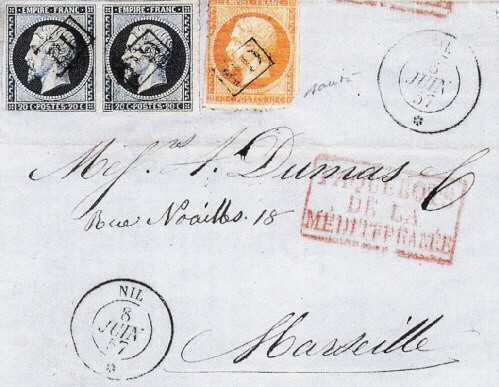 EMPIRE FRANC EMPIRE FRANC
20C POSTES 20C 20C POSTES 20C
NIL
JUIN
57
Mess.rs A. Dumas & C
Rue Noailles. 18
PAQUEBOTS
DE LA
MÉDITERRANÉE
NIL
8
JUIN
57
Marseille